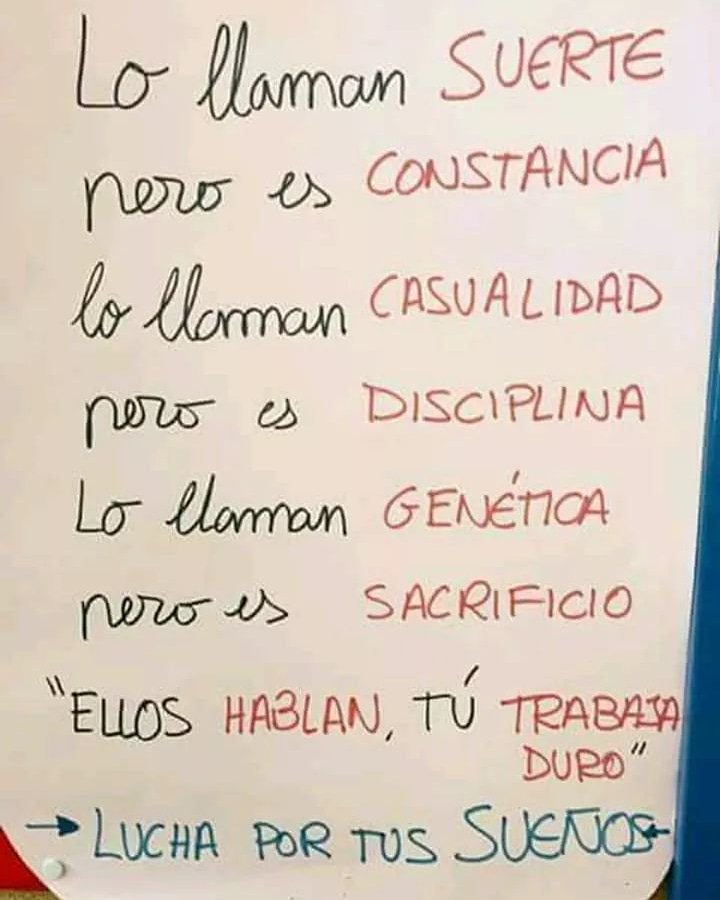 Lo llaman SUERTE
pero es CONSTANCIA
lo llaman CASUALIDAD
pero es DISCIPLINA
Lo llaman GENÉTICA
pero es SACRIFICIO
"ELLOS HABLAN, TÚ TRABAJA
DURO"
→ LUCHA POR TUS SUEÑOS ←